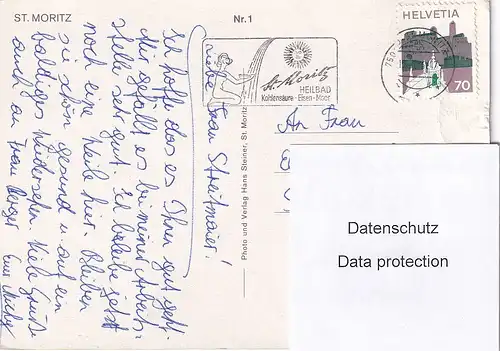 ST. MORITZ
Nr. 1
Liebe Frau Streitmaier!
Ich hoffe das es Ihnen gut geht.
Mir gefällt es bei meiner Arbeits-
stelle sehr gut. Ich bleibe jetzt
noch eine Weile hier. Bleiben
sie schön gesund u. auf ein
baldiges Wiedersehn. Viele Grüße
auch an Frau Berger
Photo und Verlag Hans Steiner, St. Moritz
St. Moritz
HEILBAD
Kohlensäure - Eisen - Moor
HELVETIA
70
An Frau
Datenschutz
Data protection